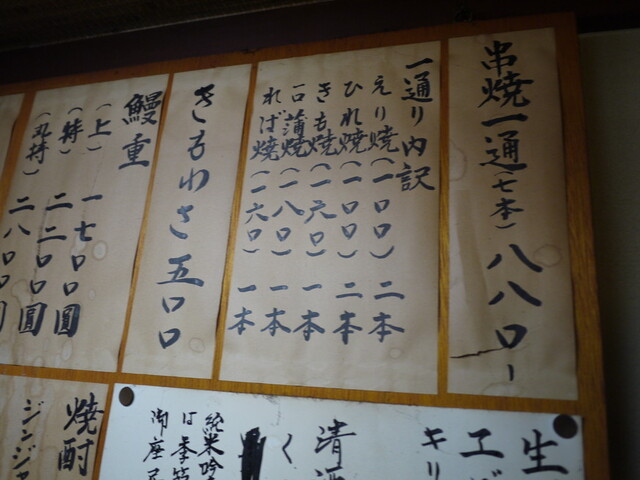 串焼一通(七本)八八〇ー
一通り内訳
えり焼(一〇〇)二本
ひれ焼(一〇〇)二本
きも焼(一六〇)一本
一口蒲焼(一八〇)一本
れば焼(一六〇)一本
きもわさ五〇〇
鰻重
(上)一七〇〇圓
(特)二二〇〇圓
(丸特)二八〇〇圓
生
エビ
キリ
清酒
く
純米吟
は季節
御座
焼酎
ジンジャ